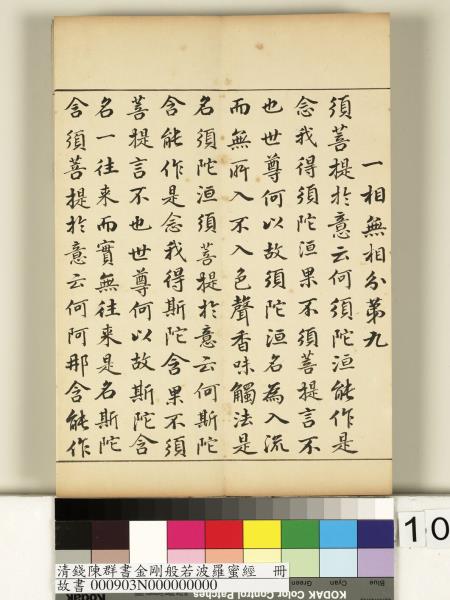 一相無相分第九
須菩提於意云何須陀洹能作是
念我得須陀洹果不須菩提言不
也世尊何以故須陀洹名為入流
而無所入不入色聲香味觸法是
名須陀洹須菩提於意云何斯陀
含能作是念我得斯陀含果不須
菩提言不也世尊何以故斯陀含
名一往來而實無往來是名斯陀
含須菩提於意云何阿那含能作
10
清錢陳群書金剛般若波羅蜜經 冊
故書000903N000000000
Green Cyan Blue
KODAK Color Control Patches
Kodak